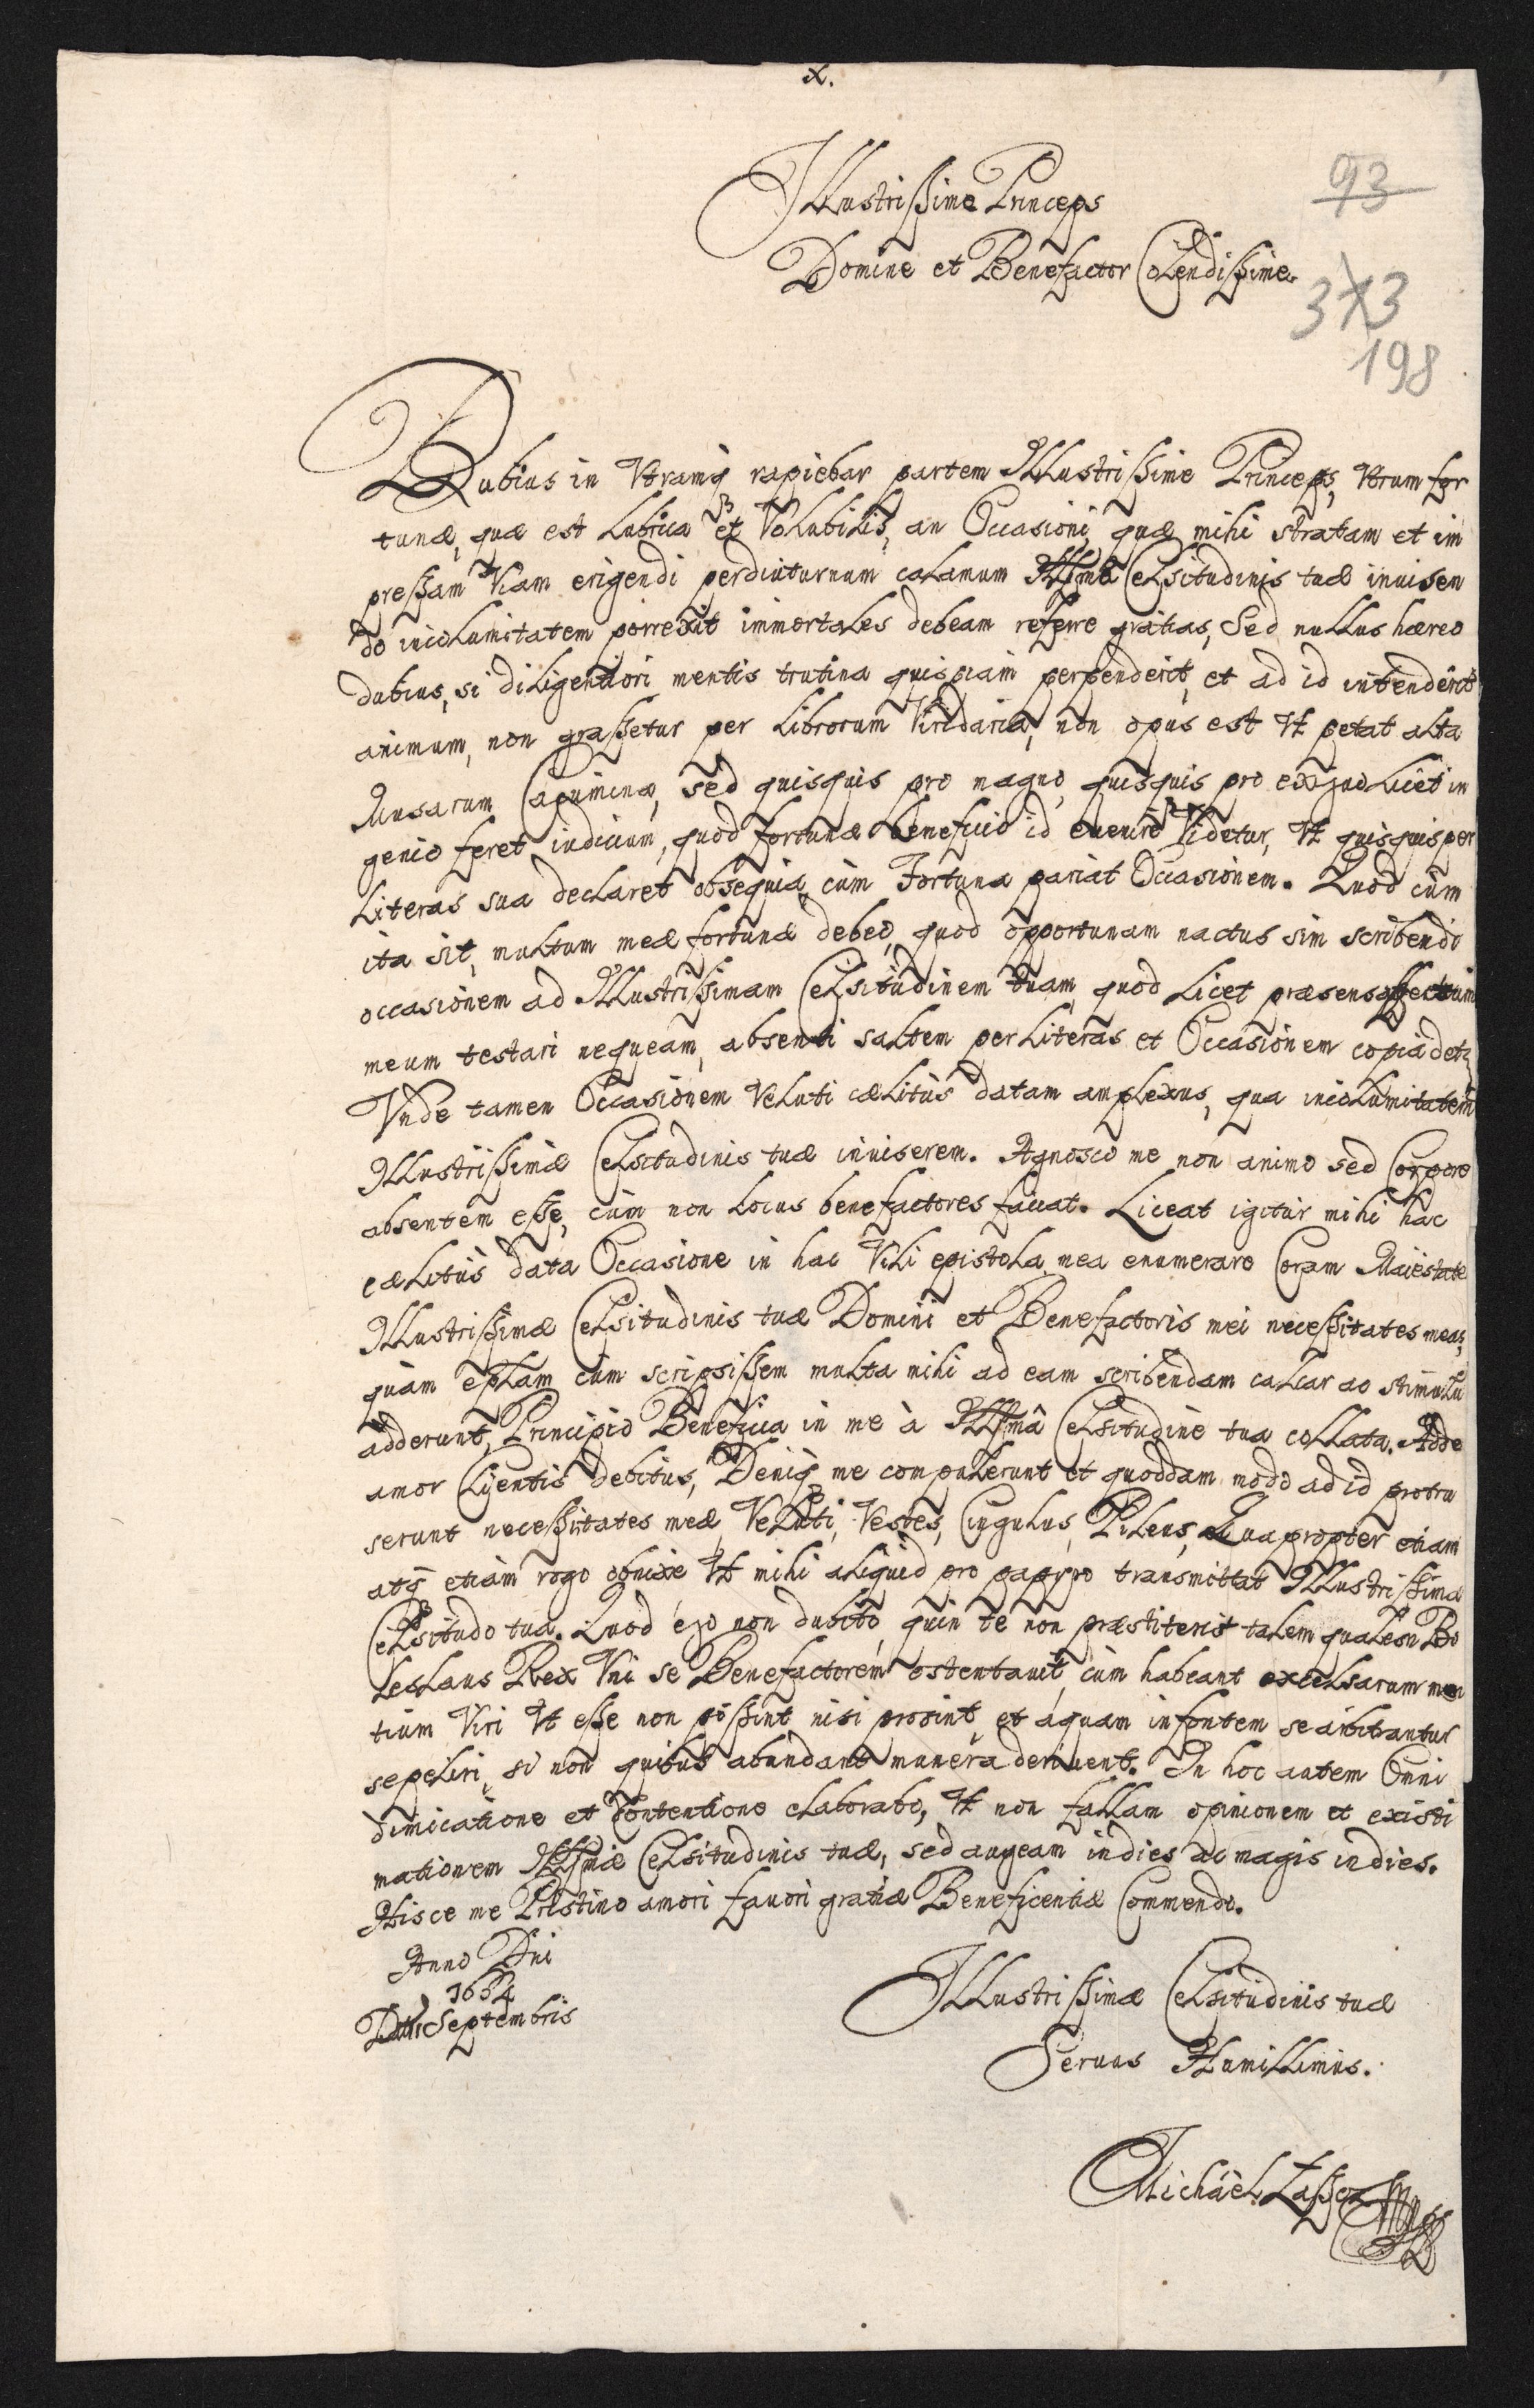 x.
Illustrissime Princeps
Domine et Benefactor Colendissime.
93
373
198
Dubius in Vtramq rapiebar partem Illustrissime Princeps, Vtrum for
tunæ, quæ est Lubrica et VoLubiLis, an Occasioni, quæ mihi stratam et im
pressam Viam erigendi perdiuturnum caLamum Illsmæ CeLsitudinis tuæ inuisen
do incoLumitatem porrexit immortaLes debeam referre gratias, Sed nuLLus hæreo
dubius, si diLigentiori mentis trutina quispiam perpenderit, et ad id intenderit
animum, non grassetur per Librorum Viridaria, non opus est Vt petat aLta
Musarum Cacumina, sed quisquis pro magno, quisquis pro exiguo Licet in
genio feret iudicium, quod fortunæ beneficio id euenire Videtur, Vt quisquis per
Literas sua decLaret obsequia, cùm Fortuna pariat Occasionem. Quod cùm
ita sit, muLtum meæ fortunæ debeo, quod opportunam nactus sim scribendi
occasionem ad ILLustrissimam CeLsitudinem tuam, quod Licet præsens affectum
meum testari nequeam, absenti saLtem per Literas et Occasionem copia det
Vnde tamen Occasionem VeLuti cæLitùs datam ampLexus, qua incoLumitatem
ILLustrissimæ CeLsitudinis tuæ inuiserem. Agnosco me non animo sed Corpore
absentem esse, cùm non Locus benefactores faciat. Liceat igitur mihi hac
cæLitùs data Occasione in hac ViLi epistoLa mea enumerare Coram Maiestate
ILLustrissimæ CeLsitudinis tuæ Domini et Benefactoris mei necessitates meas,
quàm epLam cùm scripsissem muLta mihi ad eam scribendam caLcar ac stimuLu
adderunt, Principio Beneficia in me à ILLsmâ CeLsitudine tua coLLata. Adde
amor CLientis debitus, Deniq me compuLerunt et quoddam modo ad id protru
serunt necessitates meæ, VeLuti, Vestes, CinguLus, PiLeus, Quapropter etiam
atq etiam rogo obnixe Vt mihi aLiquid pro papyro transmittat ILLustrissima
CeLsitudo tua. Quod ego non dubito, quin te non præstiteris taLem quaLem Bo
LesLaus Rex Vni se Benefactorem ostentauit, cùm habeant exceLsarum men
tium Viri Vt esse non possint nisi prosint, et aquam in fontem se arbitrantur
sepeLiri, si non quibus abundant munera deriuent. In hoc autem Omni
dimicatione et Contentione eLaborabo, Vt non faLLam opinionem et existi
mationem ILLsmæ CeLsitudinis tuæ, sed augeam indies ac magis indies.
Hisce me Pristino amori fauori gratiæ Beneficentiæ Commendo.
Anno Dni
1664
Septembris
ILLustrissimæ CeLsitudinis tuæ
Seruus HumiLLimus.
Michäel